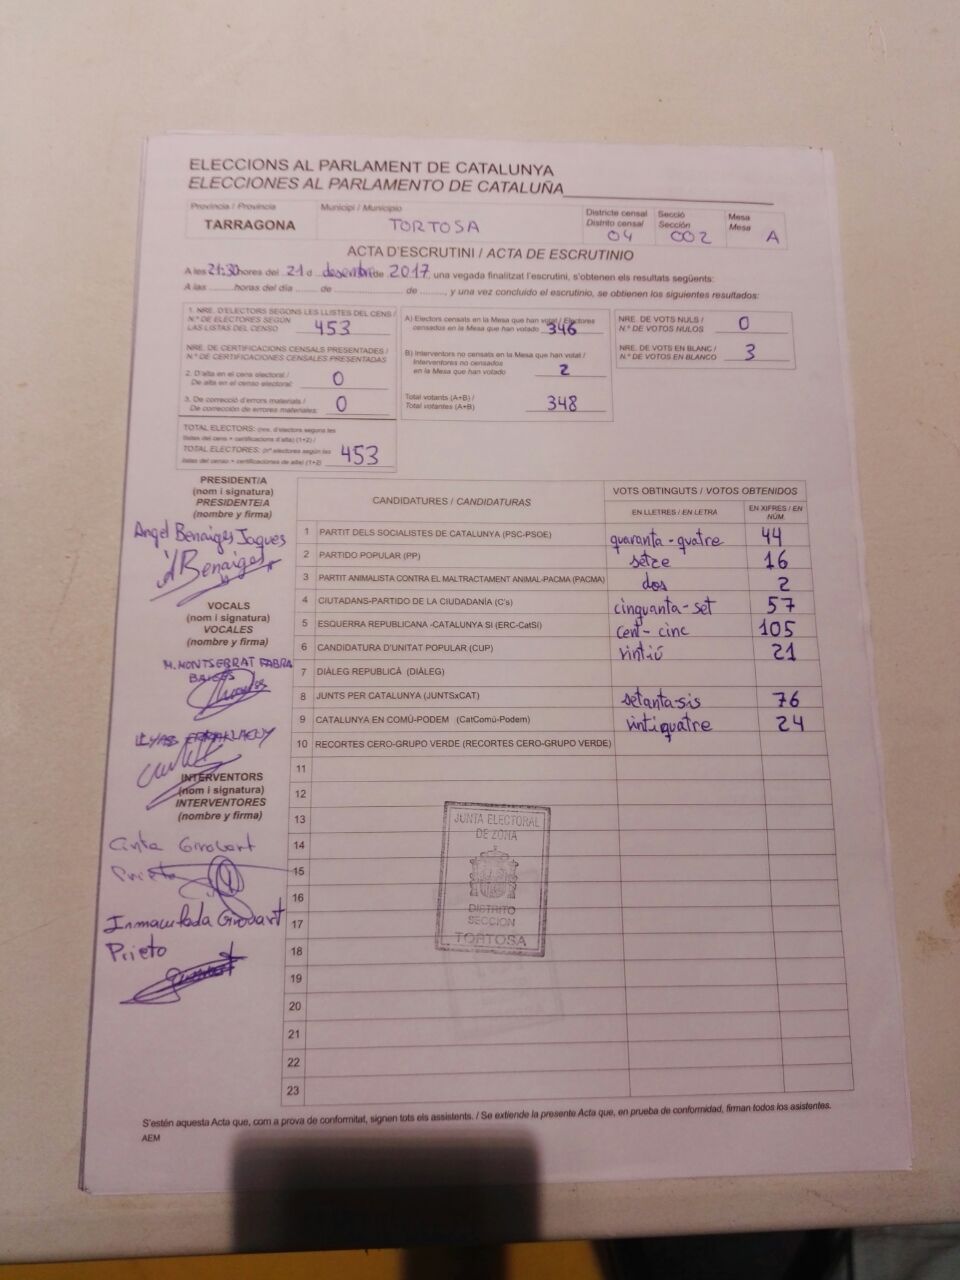 ELECCIONS AL PARLAMENT DE CATALUNYA
ELECCIONES AL PARLAMENTO DE CATALUÑA
Província / Provincia
TARRAGONA
Municipi / Municipio
TORTOSA
Districte censal
Distrito censal
04
Secció
Sección
002
Mesa
Mesa
A
ACTA D'ESCRUTINI / ACTA DE ESCRUTINIO
A les 21:30 hores del 21 d desembre de 2017, una vegada finalitzat l'escrutini, s'obtenen els resultats següents:
A las ........ horas del día ..... de ..................... de ........, y una vez concluido el escrutinio, se obtienen los siguientes resultados:
1. NRE. D'ELECTORS SEGONS LES LLISTES DEL CENS /
N.º DE ELECTORES SEGÚN
LAS LISTAS DEL CENSO
453
NRE. DE CERTIFICACIONS CENSALS PRESENTADES /
N.º DE CERTIFICACIONES CENSALES PRESENTADAS
2. D'alta en el cens electoral /
De alta en el censo electoral:
0
3. De correcció d'errors materials /
De corrección de errores materiales:
0
TOTAL ELECTORS: (nre. d'electors segons les
llistes del cens + certificacions d'alta) (1+2) /
TOTAL ELECTORES: (nº electores según las
listas del censo + certificaciones de alta) (1+2)
453
A) Electors censats en la Mesa que han votat / Electores
censados en la Mesa que han votado
346
B) Interventors no censats en la Mesa que han votat /
Interventores no censados
en la Mesa que han votado
2
Total votants (A+B) /
Total votantes (A+B)
348
NRE. DE VOTS NULS /
N.º DE VOTOS NULOS
0
NRE. DE VOTS EN BLANC /
N.º DE VOTOS EN BLANCO
3
PRESIDENT/A
(nom i signatura)
PRESIDENTE/A
(nombre y firma)
Angel Benaiges Jaques
Benaiges
VOCALS
(nom i signatura)
VOCALES
(nombre y firma)
M. MONTSERRAT FABRA
INTERVENTORS
(nom i signatura)
INTERVENTORES
(nombre y firma)
Cinta Girobart
Prieto
Inmaculada Girobart
Prieto
CANDIDATURES / CANDIDATURAS
VOTS OBTINGUTS / VOTOS OBTENIDOS
EN LLETRES / EN LETRA
EN XIFRES / EN NÚM.
1 PARTIT DELS SOCIALISTES DE CATALUNYA (PSC-PSOE) quaranta-quatre 44
2 PARTIDO POPULAR (PP) setze 16
3 PARTIT ANIMALISTA CONTRA EL MALTRACTAMENT ANIMAL-PACMA (PACMA) dos 2
4 CIUTADANS-PARTIDO DE LA CIUDADANÍA (C's) cinquanta-set 57
5 ESQUERRA REPUBLICANA -CATALUNYA SI (ERC-CatSí) cent-cinc 105
6 CANDIDATURA D'UNITAT POPULAR (CUP) vintiú 21
7 DIÀLEG REPUBLICÀ (DIÀLEG)
8 JUNTS PER CATALUNYA (JUNTSxCAT) setanta-sis 76
9 CATALUNYA EN COMÚ-PODEM (CatComú-Podem) vintiquatre 24
10 RECORTES CERO-GRUPO VERDE (RECORTES CERO-GRUPO VERDE)
11
12
13
14
15
16
17
18
19
20
21
22
23
JUNTA ELECTORAL
DE ZONA
DISTRITO
SECCION
TORTOSA
S'estén aquesta Acta que, com a prova de conformitat, signen tots els assistents. / Se extiende la presente Acta que, en prueba de conformidad, firman todos los asistentes.
AEM